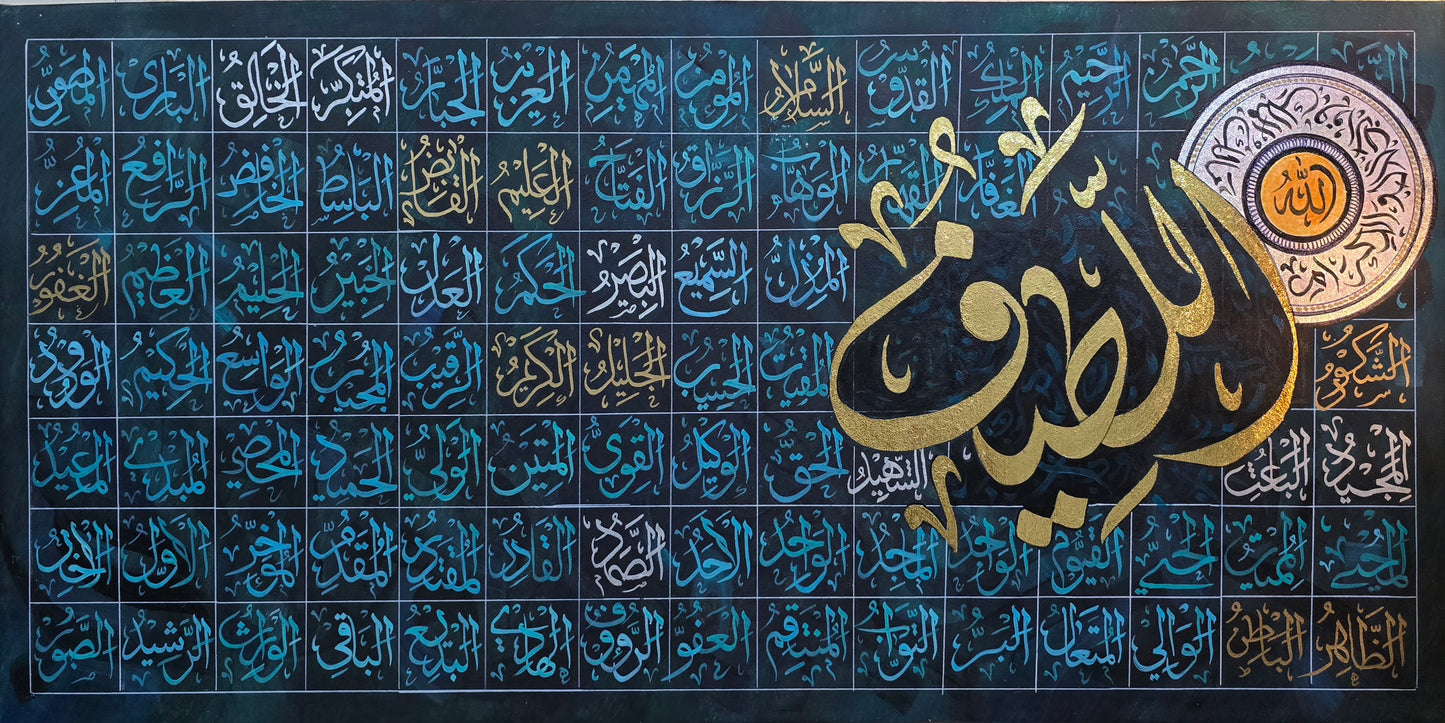 الرحمن الرحيم الملك القدوس السلام المؤمن المهيمن العزيز الجبار المتكبر الخالق البارئ المصور
الغفار القهار الوهاب الرزاق الفتاح العليم القابض الباسط الخافض الرافع المعز
المذل السميع البصير الحكم العدل الخبير الحليم العظيم الغفور
اللطيف
الله
الشكور المقيت الحسيب الجليل الكريم الرقيب المجيب الواسع الحكيم الودود
المجيد الباعث الشهيد الحق الوكيل القوي المتين الولي الحميد المحصي المبدئ المعيد
المحيي المميت الحي القيوم الواجد الماجد الواحد الأحد الصمد القادر المقتدر المقدم المؤخر الأول الآخر
الظاهر الباطن الوالي المتعال البر التواب المنتقم العفو الرؤوف الهادي البديع الباقي الوارث الرشيد الصبور